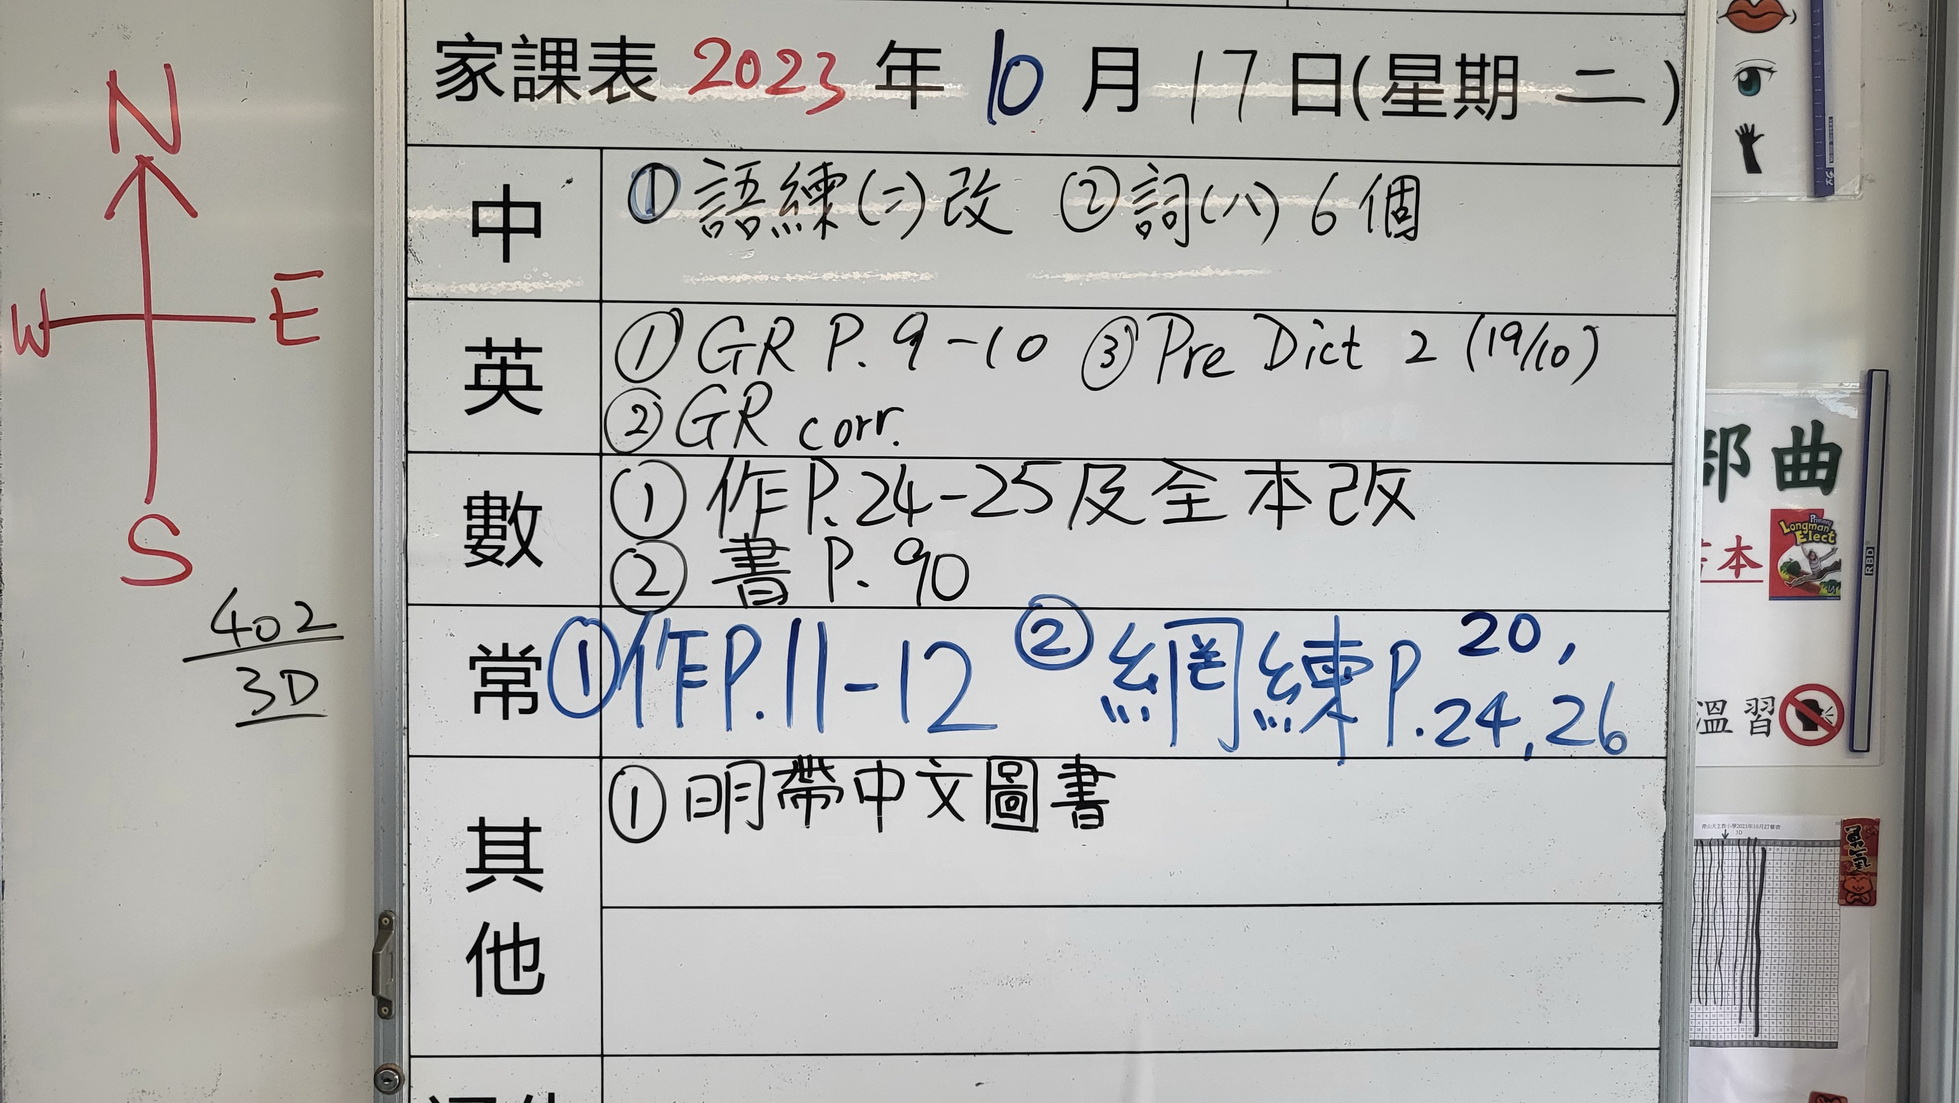 N
W E
S
402
3D
家課表 2023 年 10 月 17 日(星期 二 )
中
①語練(二)改 ②詞(八) 6個
英
①GR P. 9-10 ③Pre Dict 2 (19/10)
②GR corr.
數
①作P.24-25及全本改
②書P. 90
常
①作P.11-12 ②網練P. 20,
24,26
其他
①明帶中文圖書
部曲
本
Longman
Elect
RBD
溫習